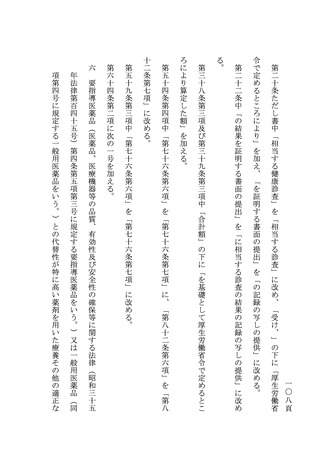 一〇八頁
第二十条ただし書中「相当する健康診査」を「相当する診査」に改め、「受け、」の下に「厚生労働省
令で定めるところにより」を加え、「を証明する書面の提出」を「の記録の写しの提供」に改める。
第二十二条中「の結果を証明する書面の提出」を「に相当する診査の結果の記録の写しの提供」に改め
る。
第三十八条第三項及び第三十九条第三項中「合計額」の下に「を基礎として厚生労働省令で定めるとこ
ろにより算定した額」を加える。
第五十四条第四項中「第七十六条第六項」を「第七十六条第七項」に、「第八十二条第六項」を「第八
十二条第七項」に改める。
第五十九条第三項中「第七十六条第六項」を「第七十六条第七項」に改める。
第六十四条第二項に次の一号を加える。
六 要指導医薬品（医薬品、医療機器等の品質、有効性及び安全性の確保等に関する法律（昭和三十五
年法律第百四十五号）第四条第五項第三号に規定する要指導医薬品をいう。）又は一般用医薬品（同
項第四号に規定する一般用医薬品をいう。）との代替性が特に高い薬剤を用いた療養その他の適正な